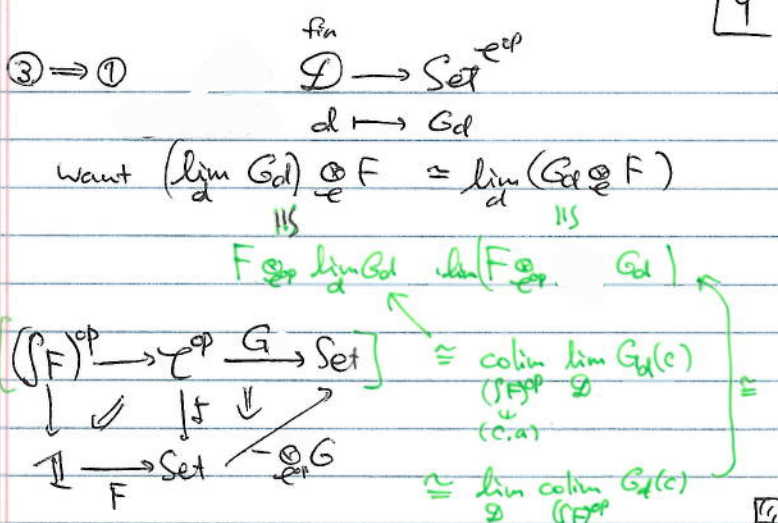 9
③ ⟹ ① fin 𝒟 ⟶ Set^{𝒞^{op}}
d ⟼ G_d
want (lim_d G_d) ⊗_𝒞 F ≅ lim_d (G_d ⊗_𝒞 F)
F ⊗_{𝒞^{op}} lim_d G_d lim (F ⊗_{𝒞^{op}} G_d)
[(∫F)^{op} ⟶ 𝒞^{op} ⟶^G Set] ≅ colim_{(∫F)^{op}} lim_𝒟 G_d(c) ≅
(c,a)
𝟙 ⟶_F Set - ⊗_{𝒞^{op}} G
≅ lim_𝒟 colim_{(∫F)^{op}} G_d(c)